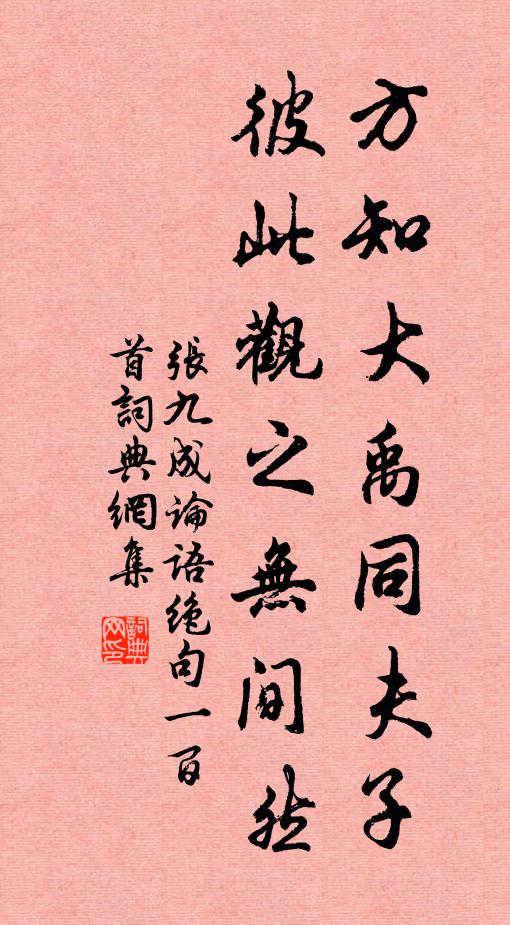 方知大禹同夫子
彼此觀之無間然
張九成論语绝句一百
首詞典網集
詞典网印